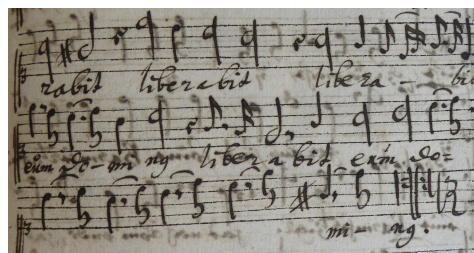 rabit liberabit libera- bit
eum do- mi- ng liberabit eum do-
mi- ng.